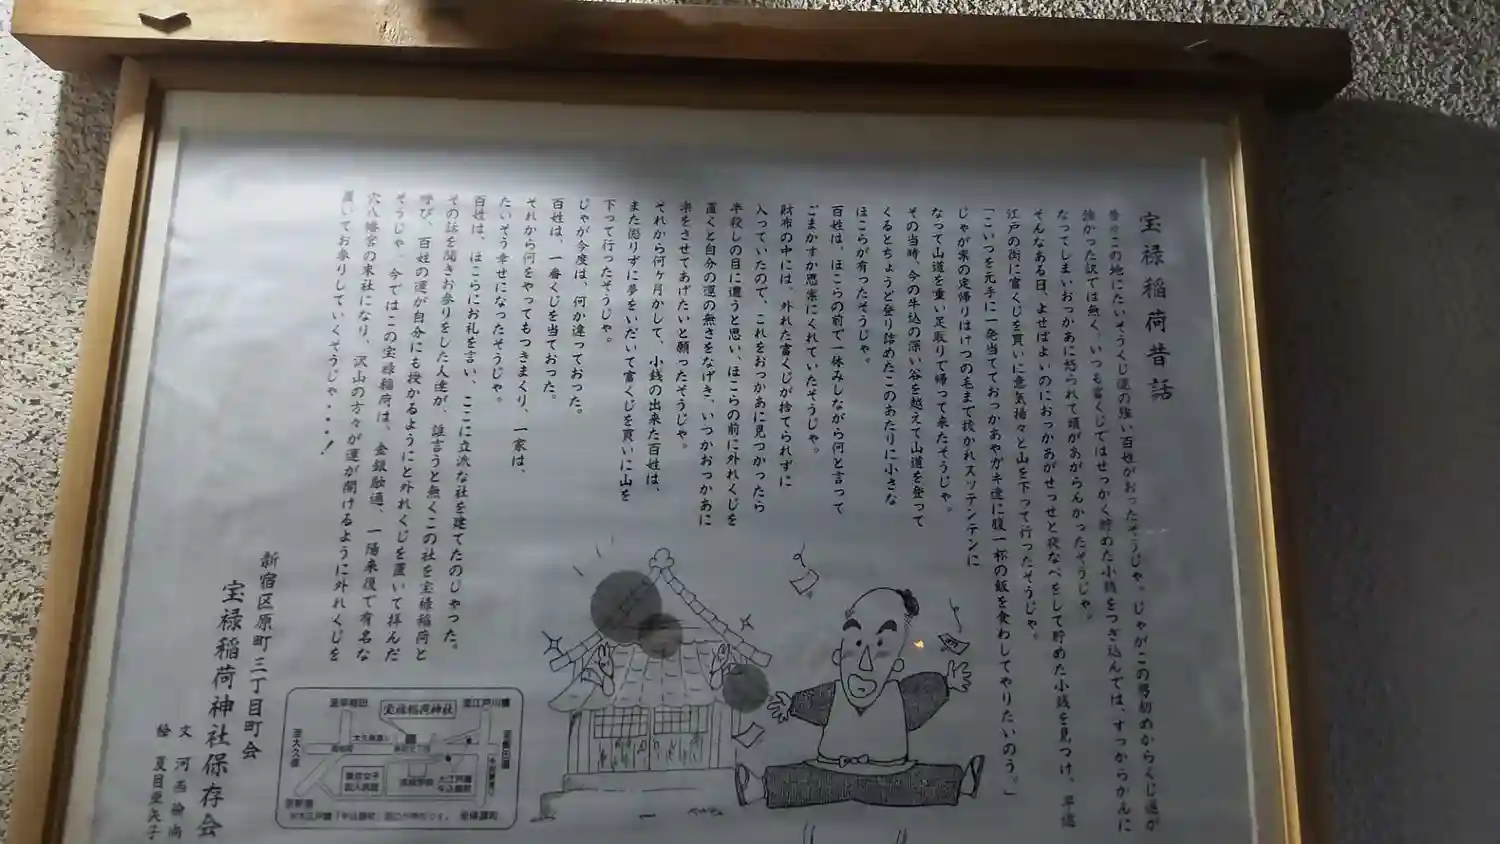 宝禄稲荷昔話
昔々この地にたいそうくじ運の強い百姓がおったそうじゃ。じゃがこの男初めからくじ運が
強かった訳では無く、いつも富くじではせっかく貯めた小銭をつぎ込んでは、すっからかんに
なってしまいおっかあに怒られて頭があがらんかったそうじゃ。
そんなある日、よせばよいのにおっかあがせっせと夜なべをして貯めた小銭を見つけ、早速
江戸の街に富くじを買いに意気揚々と山を下って行ったそうじゃ。
「こいつを元手に一発当てておっかあやガキ達に腹一杯の飯を食わしてやりたいのう。」
じゃが案の定帰りはけつの毛まで抜かれスッテンテンに
なって山道を重い足取りで帰って来たそうじゃ。
その当時、今の牛込の深い谷を越えて山道を登って
くるとちょうど登り詰めたこのあたりに小さな
ほこらが有ったそうじゃ。
百姓は、ほこらの前で一休みしながら何と言って
ごまかすか思案にくれていたそうじゃ。
財布の中には、外れた富くじが捨てられずに
入っていたので、これをおっかあに見つかったら
半殺しの目に遭うと思い、ほこらの前に外れくじを
置くと自分の運の無さをなげき、いつかおっかあに
楽をさせてあげたいと願ったそうじゃ。
それから何ヶ月かして、小銭の出来た百姓は、
また懲りずに夢をいだいて富くじを買いに山を
下って行ったそうじゃ。
じゃが今度は、何か違っておった。
百姓は、一番くじを当ておった。
それから何をやってもつきまくり、一家は、
たいそう幸せになったそうじゃ。
百姓は、ほこらにお礼を言い、ここに立派な社を建てたのじゃった。
その話を聞きお参りをした人達が、誰言うと無くこの社を宝禄稲荷と
呼び、百姓の運が自分にも授かるようにと外れくじを置いて拝んだ
そうじゃ。今ではこの宝禄稲荷は、金銀融通、一陽来復で有名な
穴八幡宮の末社になり、沢山の方々が運が開けるように外れくじを
置いてお参りしていくそうじゃ・・・!
新宿区原町三丁目町会
宝禄稲荷神社保存会
文 河西
絵 夏目亜矢子
至早稲田
宝禄稲荷神社
至江戸川橋
至大久保
至飯田橋